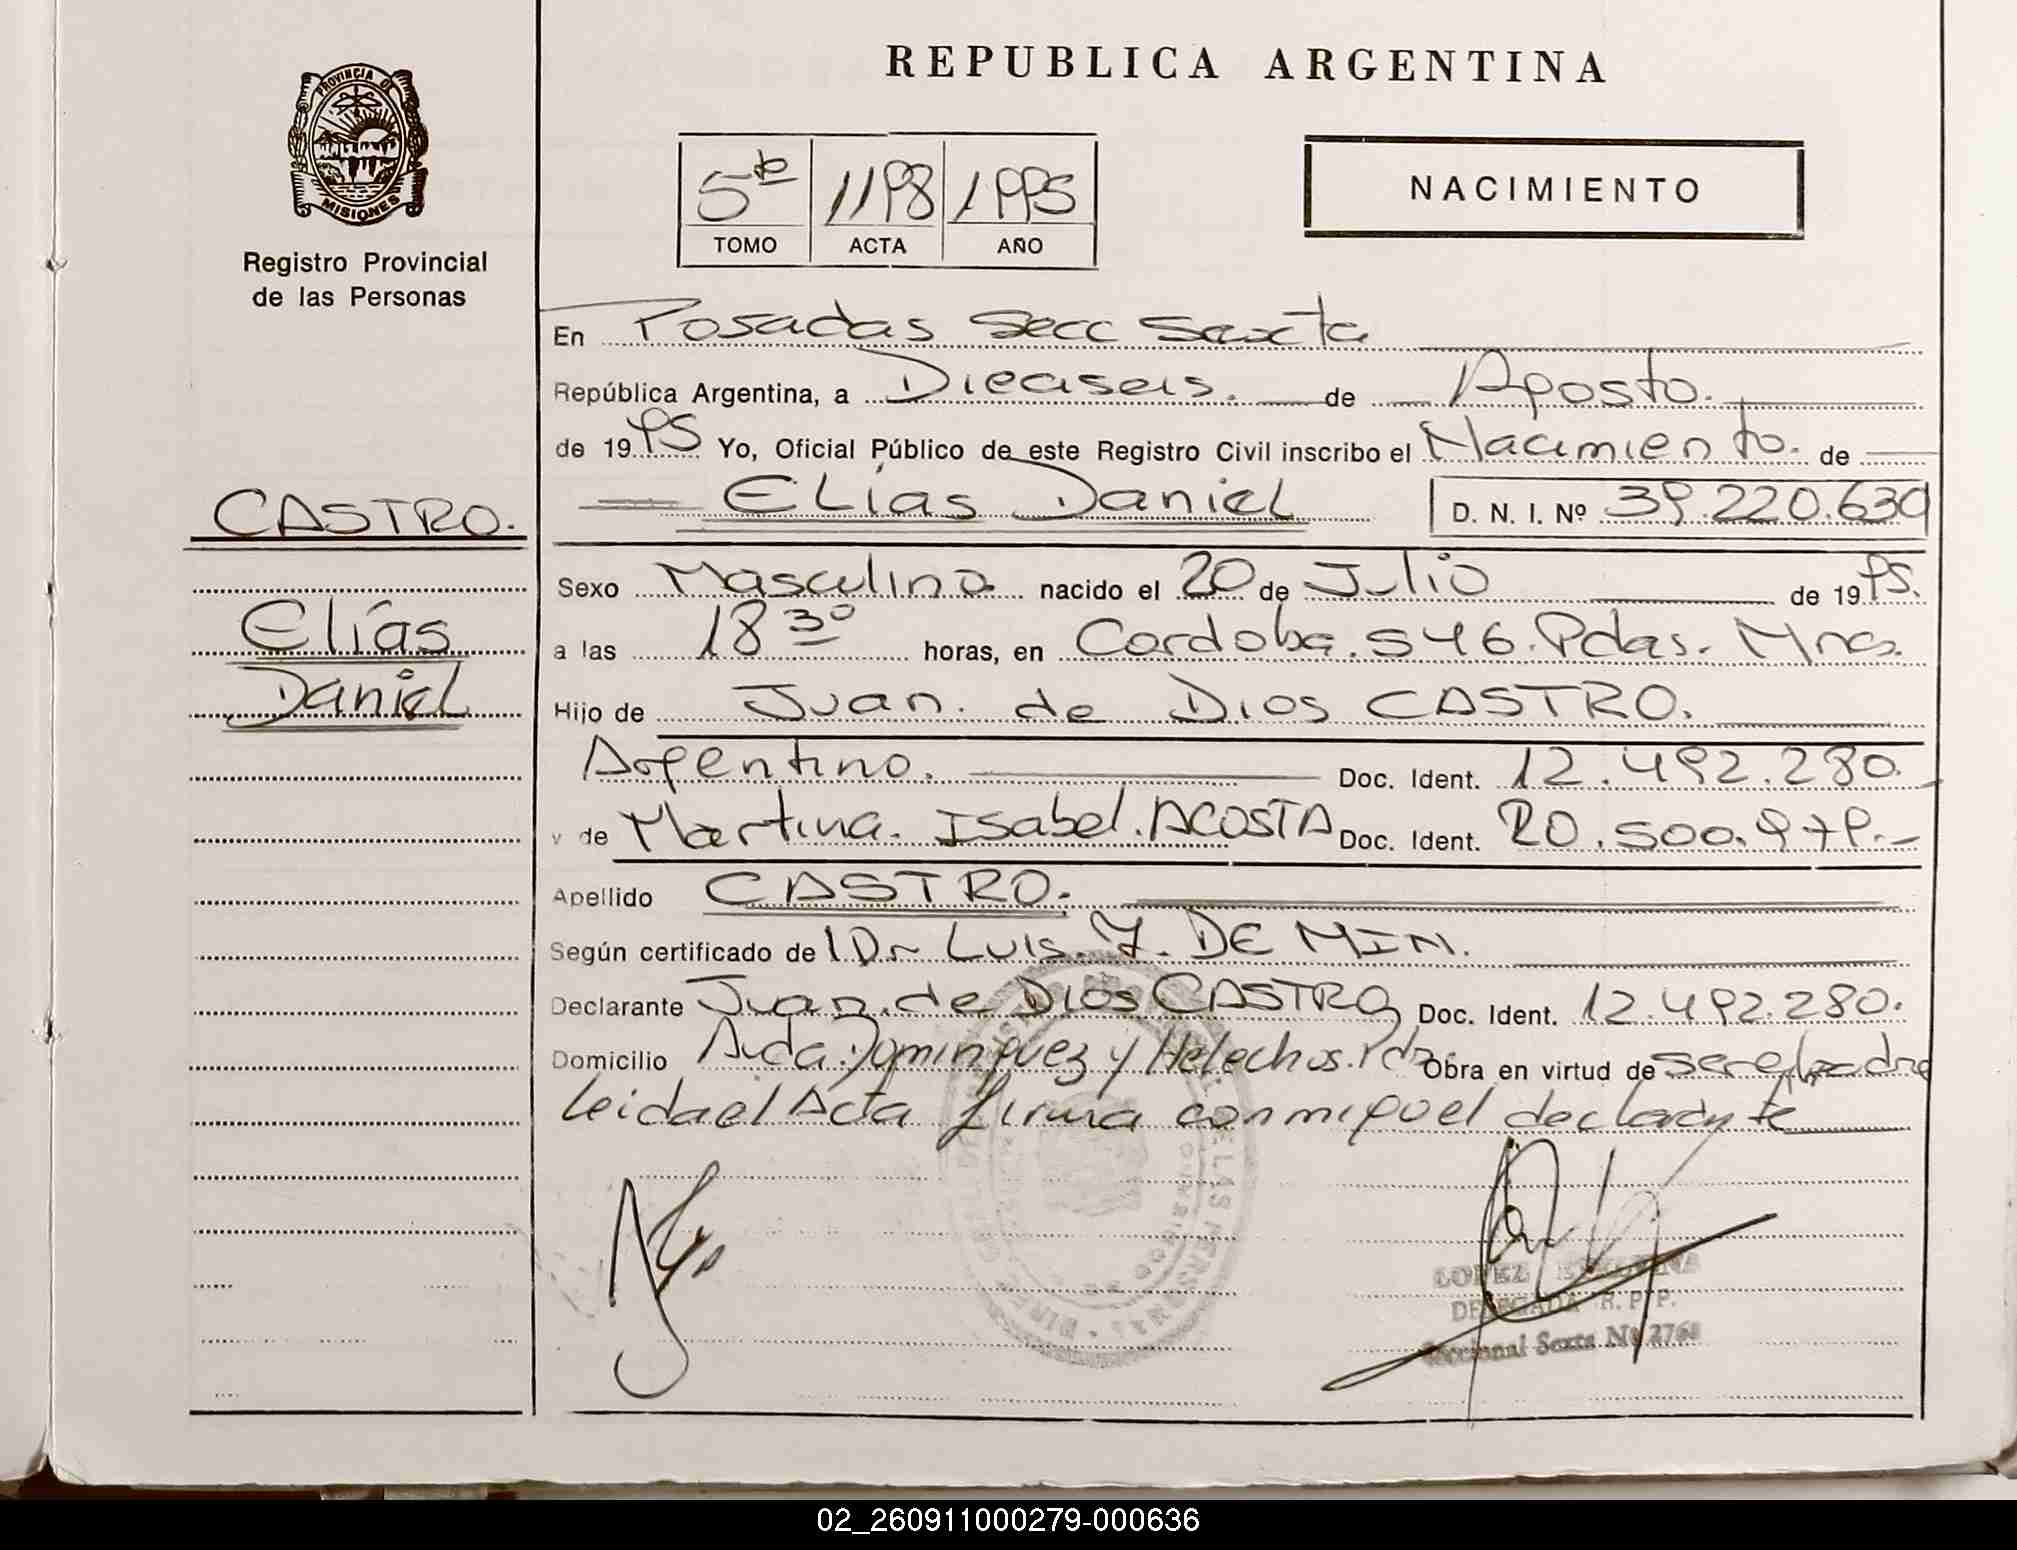 REPUBLICA ARGENTINA
PROVINCIA DE
MISIONES
Registro Provincial
de las Personas
5to 1198 1995
TOMO ACTA AÑO
NACIMIENTO
En Posadas Secc Sexta
República Argentina, a Dieciseis. de Agosto.
de 1995 Yo, Oficial Público de este Registro Civil inscribo el Nacimiento. de
Elías Daniel D. N. I. Nº 39.220.630
CASTRO.
Elías
Daniel
Sexo Masculino nacido el 20 de Julio de 1995.
a las 18 30 horas, en Cordoba. 546. Pdas. Mnes.
Hijo de Juan. de Dios CASTRO.
Argentino. Doc. Ident. 12.492.280.
y de Martina. Isabel. ACOSTA Doc. Ident. 20.500.979.-
Apellido CASTRO.
Según certificado de Dr Luis. DE MIN.
Declarante Juan. de Dios CASTRO Doc. Ident. 12.492.280.
Domicilio Avda. Dominguez y Helechos. Pdas Obra en virtud de ser el padre
leida el Acta firma conmigo el declarante
LOPEZ
DELEGADA R. P. P.
Seccional Sexta
02_260911000279-000636